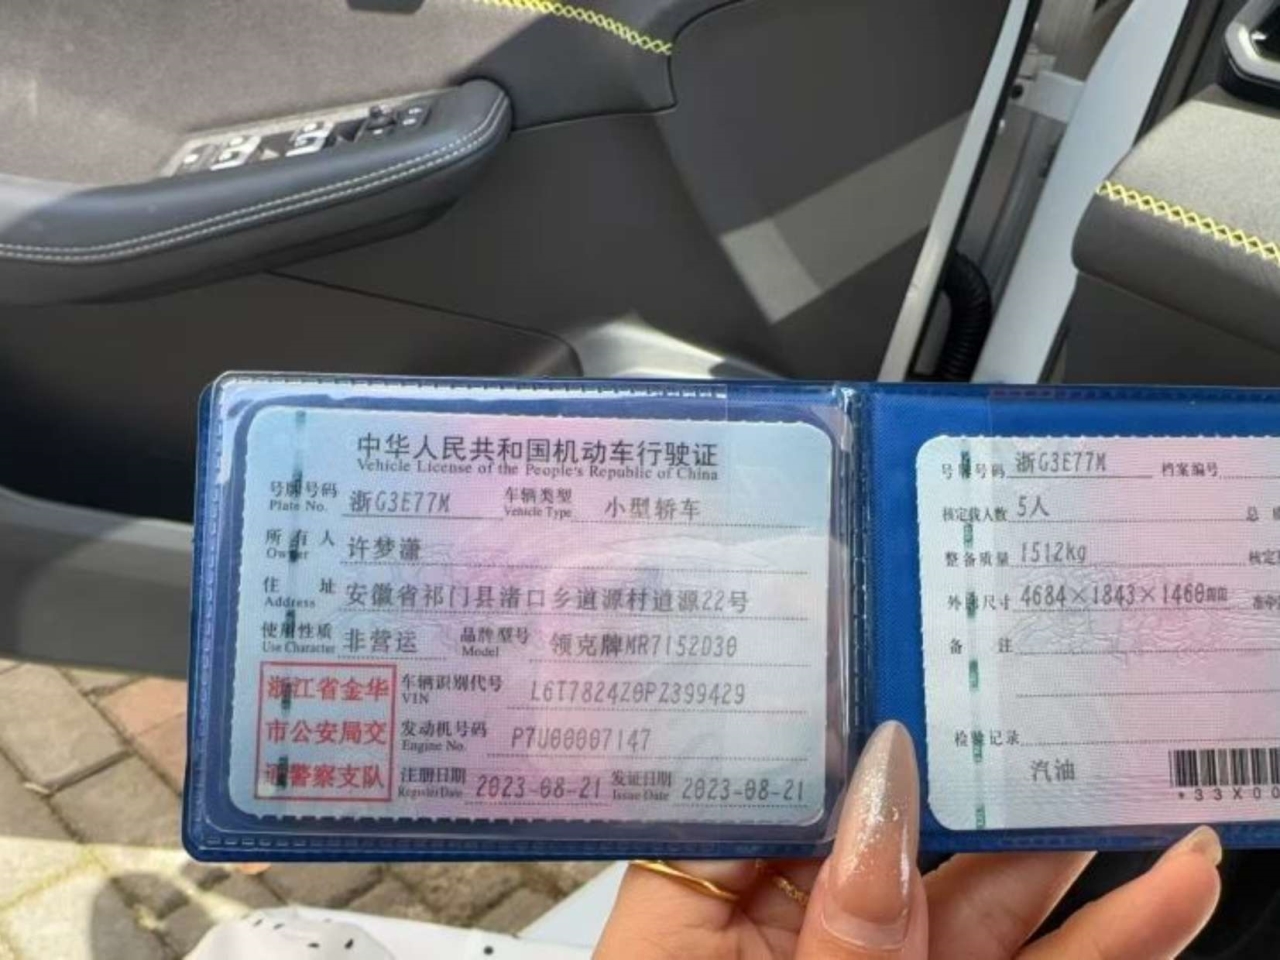 中华人民共和国机动车行驶证
Vehicle License of the People's Republic of China
号牌号码 浙G3E77M 车辆类型 小型轿车
Plate No. Vehicle Type
所有人 许梦潇
Owner
住址 安徽省祁门县渚口乡道源村道源22号
Address
使用性质 非营运 品牌型号 领克牌MR7152D30
Use Character Model
浙江省金华
市公安局交
通警察支队
车辆识别代号 L6T7824Z0PZ399429
VIN
发动机号码 P7U00007147
Engine No.
注册日期 2023-08-21 发证日期 2023-08-21
Register Date Issue Date
号牌号码 浙G3E77M 档案编号
核定载人数 5人 总
整备质量 1512kg 核定
外廓尺寸 4684×1843×1460mm
备注
检验记录
汽油
*33X00